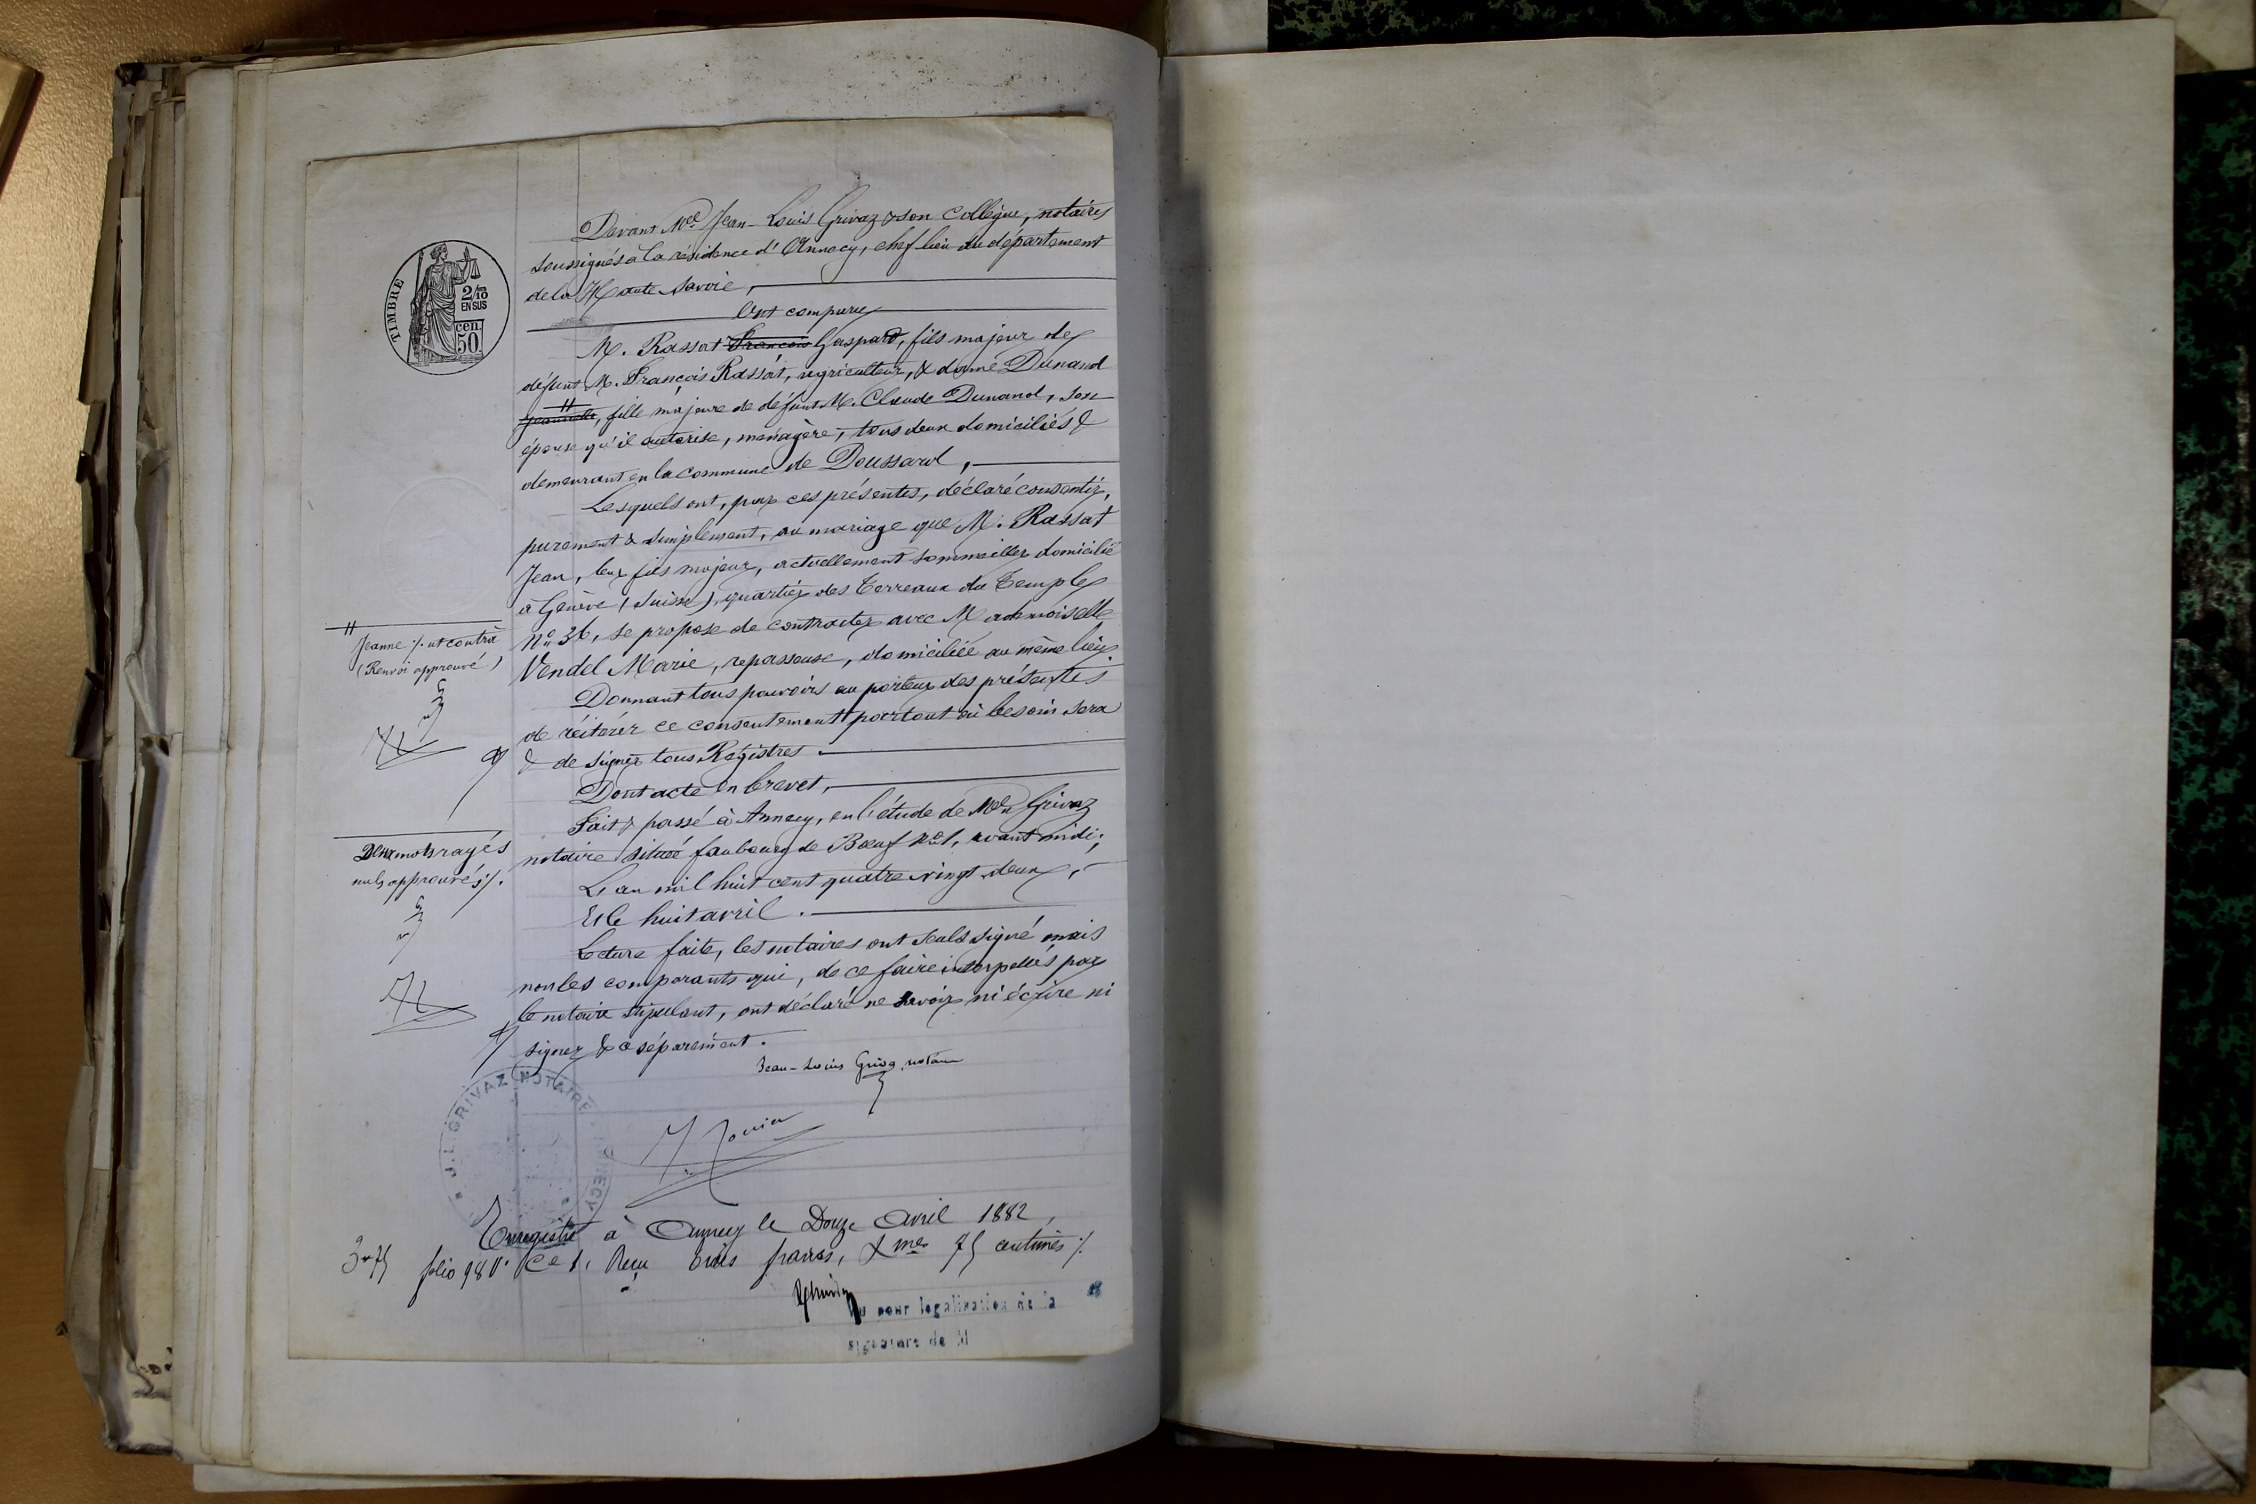 Devant Me Jean-Louis Grivaz & son collègue, notaires
soussignés à la résidence d'Annecy, chef lieu du département
de la Haute Savoie,
Ont comparu
M. Rassat François Gaspard, fils majeur de
défunt M. François Rassat, agriculteur, & dame Dunand
Jeannette, fille majeure de défunt M. Claude Dunand, son
épouse qu'il autorise, ménagère, tous deux domiciliés &
demeurant en la commune de Doussard,
Lesquels ont, par ces présentes, déclaré consentir,
purement & simplement, au mariage que M. Rassat
Jean, leur fils majeur, actuellement sommeiller domicilié
à Genève (Suisse), quartier des Terreaux du Temple
No 36, se propose de contracter avec Mademoiselle
Vendel Marie, repasseuse, domiciliée au même lieu.
Donnant tous pouvoirs au porteur des présentes
de réitérer ce consentement partout où besoin sera
& de signer tous Registres.
Dont acte en brevet,
Fait & passé à Annecy, en l'étude de Me Grivaz
notaire située faubourg de Bœuf No 1, avant midi;
L'an mil huit cent quatre vingt deux,
Et le huit avril.
Lecture faite, les notaires ont seuls signé mais
non les comparants qui, de ce faire interpellés par
le notaire stipulant, ont déclaré ne savoir ni écrire ni
signer & ce séparément.
Jean-Louis Grivaz notaire
TIMBRE
2/10
EN SUS
cen
50
Jeanne ./. ut contrà
(Renvoi approuvé)
Deux mots rayés
nuls approuvés ./.
J.L. GRIVAZ NOTAIRE ANNECY
Enregistré à Annecy le Douze Avril 1882,
3 75 folio 98 Vo Ce 1. Reçu trois francs, Xmes 75 centimes ./.
Vu pour legalisation de la
signature de M